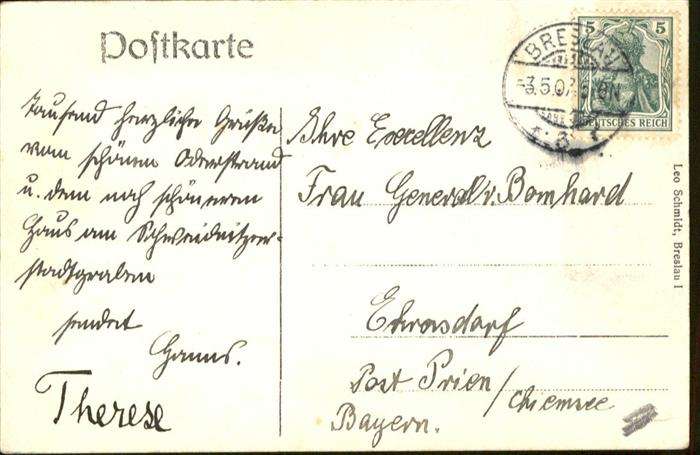 Postkarte
Tausend herzliche Grüße
vom schönen Oderstrand
u. dem noch schöneren
Haus am Schweidnitzer-
stadtgraben
sendet
Hanns.
Therese
Ihre Excellenz
Frau General v. Bomhard
Ernsdorf
Post Prien / Chiemsee
Bayern.
BRESLAU
3.5.07.
5 5
DEUTSCHES REICH
Leo Schmidt, Breslau I